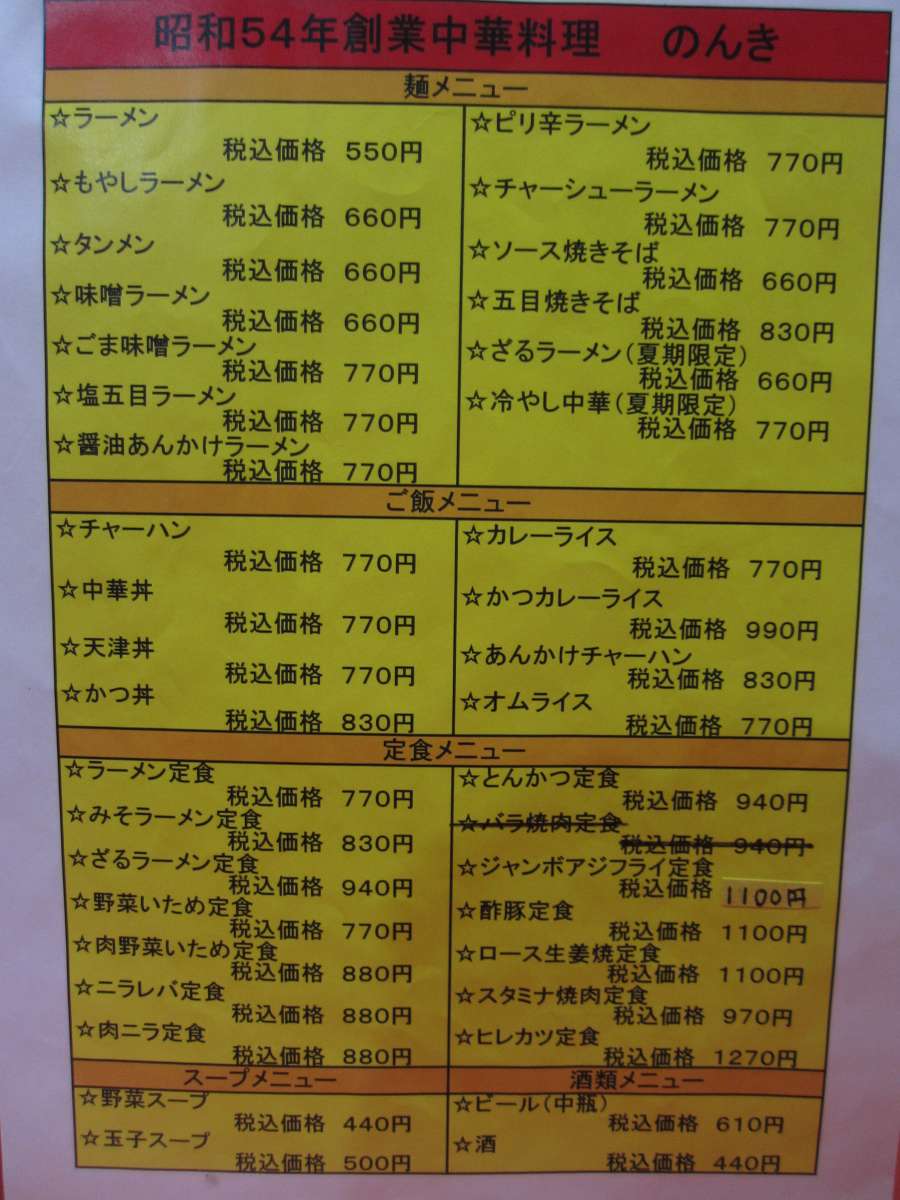 昭和54年創業中華料理 のんき
麺メニュー
☆ラーメン
税込価格 550円
☆もやしラーメン
税込価格 660円
☆タンメン
税込価格 660円
☆味噌ラーメン
税込価格 660円
☆ごま味噌ラーメン
税込価格 770円
☆塩五目ラーメン
税込価格 770円
☆醤油あんかけラーメン
税込価格 770円
☆ピリ辛ラーメン
税込価格 770円
☆チャーシューラーメン
税込価格 770円
☆ソース焼きそば
税込価格 660円
☆五目焼きそば
税込価格 830円
☆ざるラーメン(夏期限定)
税込価格 660円
☆冷やし中華(夏期限定)
税込価格 770円
ご飯メニュー
☆チャーハン
税込価格 770円
☆中華丼
税込価格 770円
☆天津丼
税込価格 770円
☆かつ丼
税込価格 830円
☆カレーライス
税込価格 770円
☆かつカレーライス
税込価格 990円
☆あんかけチャーハン
税込価格 830円
☆オムライス
税込価格 770円
定食メニュー
☆ラーメン定食
税込価格 770円
☆みそラーメン定食
税込価格 830円
☆ざるラーメン定食
税込価格 940円
☆野菜いため定食
税込価格 770円
☆肉野菜いため定食
税込価格 880円
☆ニラレバ定食
税込価格 880円
☆肉ニラ定食
税込価格 880円
☆とんかつ定食
税込価格 940円
☆バラ焼肉定食
税込価格 940円
☆ジャンボアジフライ定食
税込価格 1100円
☆酢豚定食
税込価格 1100円
☆ロース生姜焼定食
税込価格 1100円
☆スタミナ焼肉定食
税込価格 970円
☆ヒレカツ定食
税込価格 1270円
スープメニュー
☆野菜スープ
税込価格 440円
☆玉子スープ
税込価格 500円
酒類メニュー
☆ビール(中瓶)
税込価格 610円
☆酒
税込価格 440円